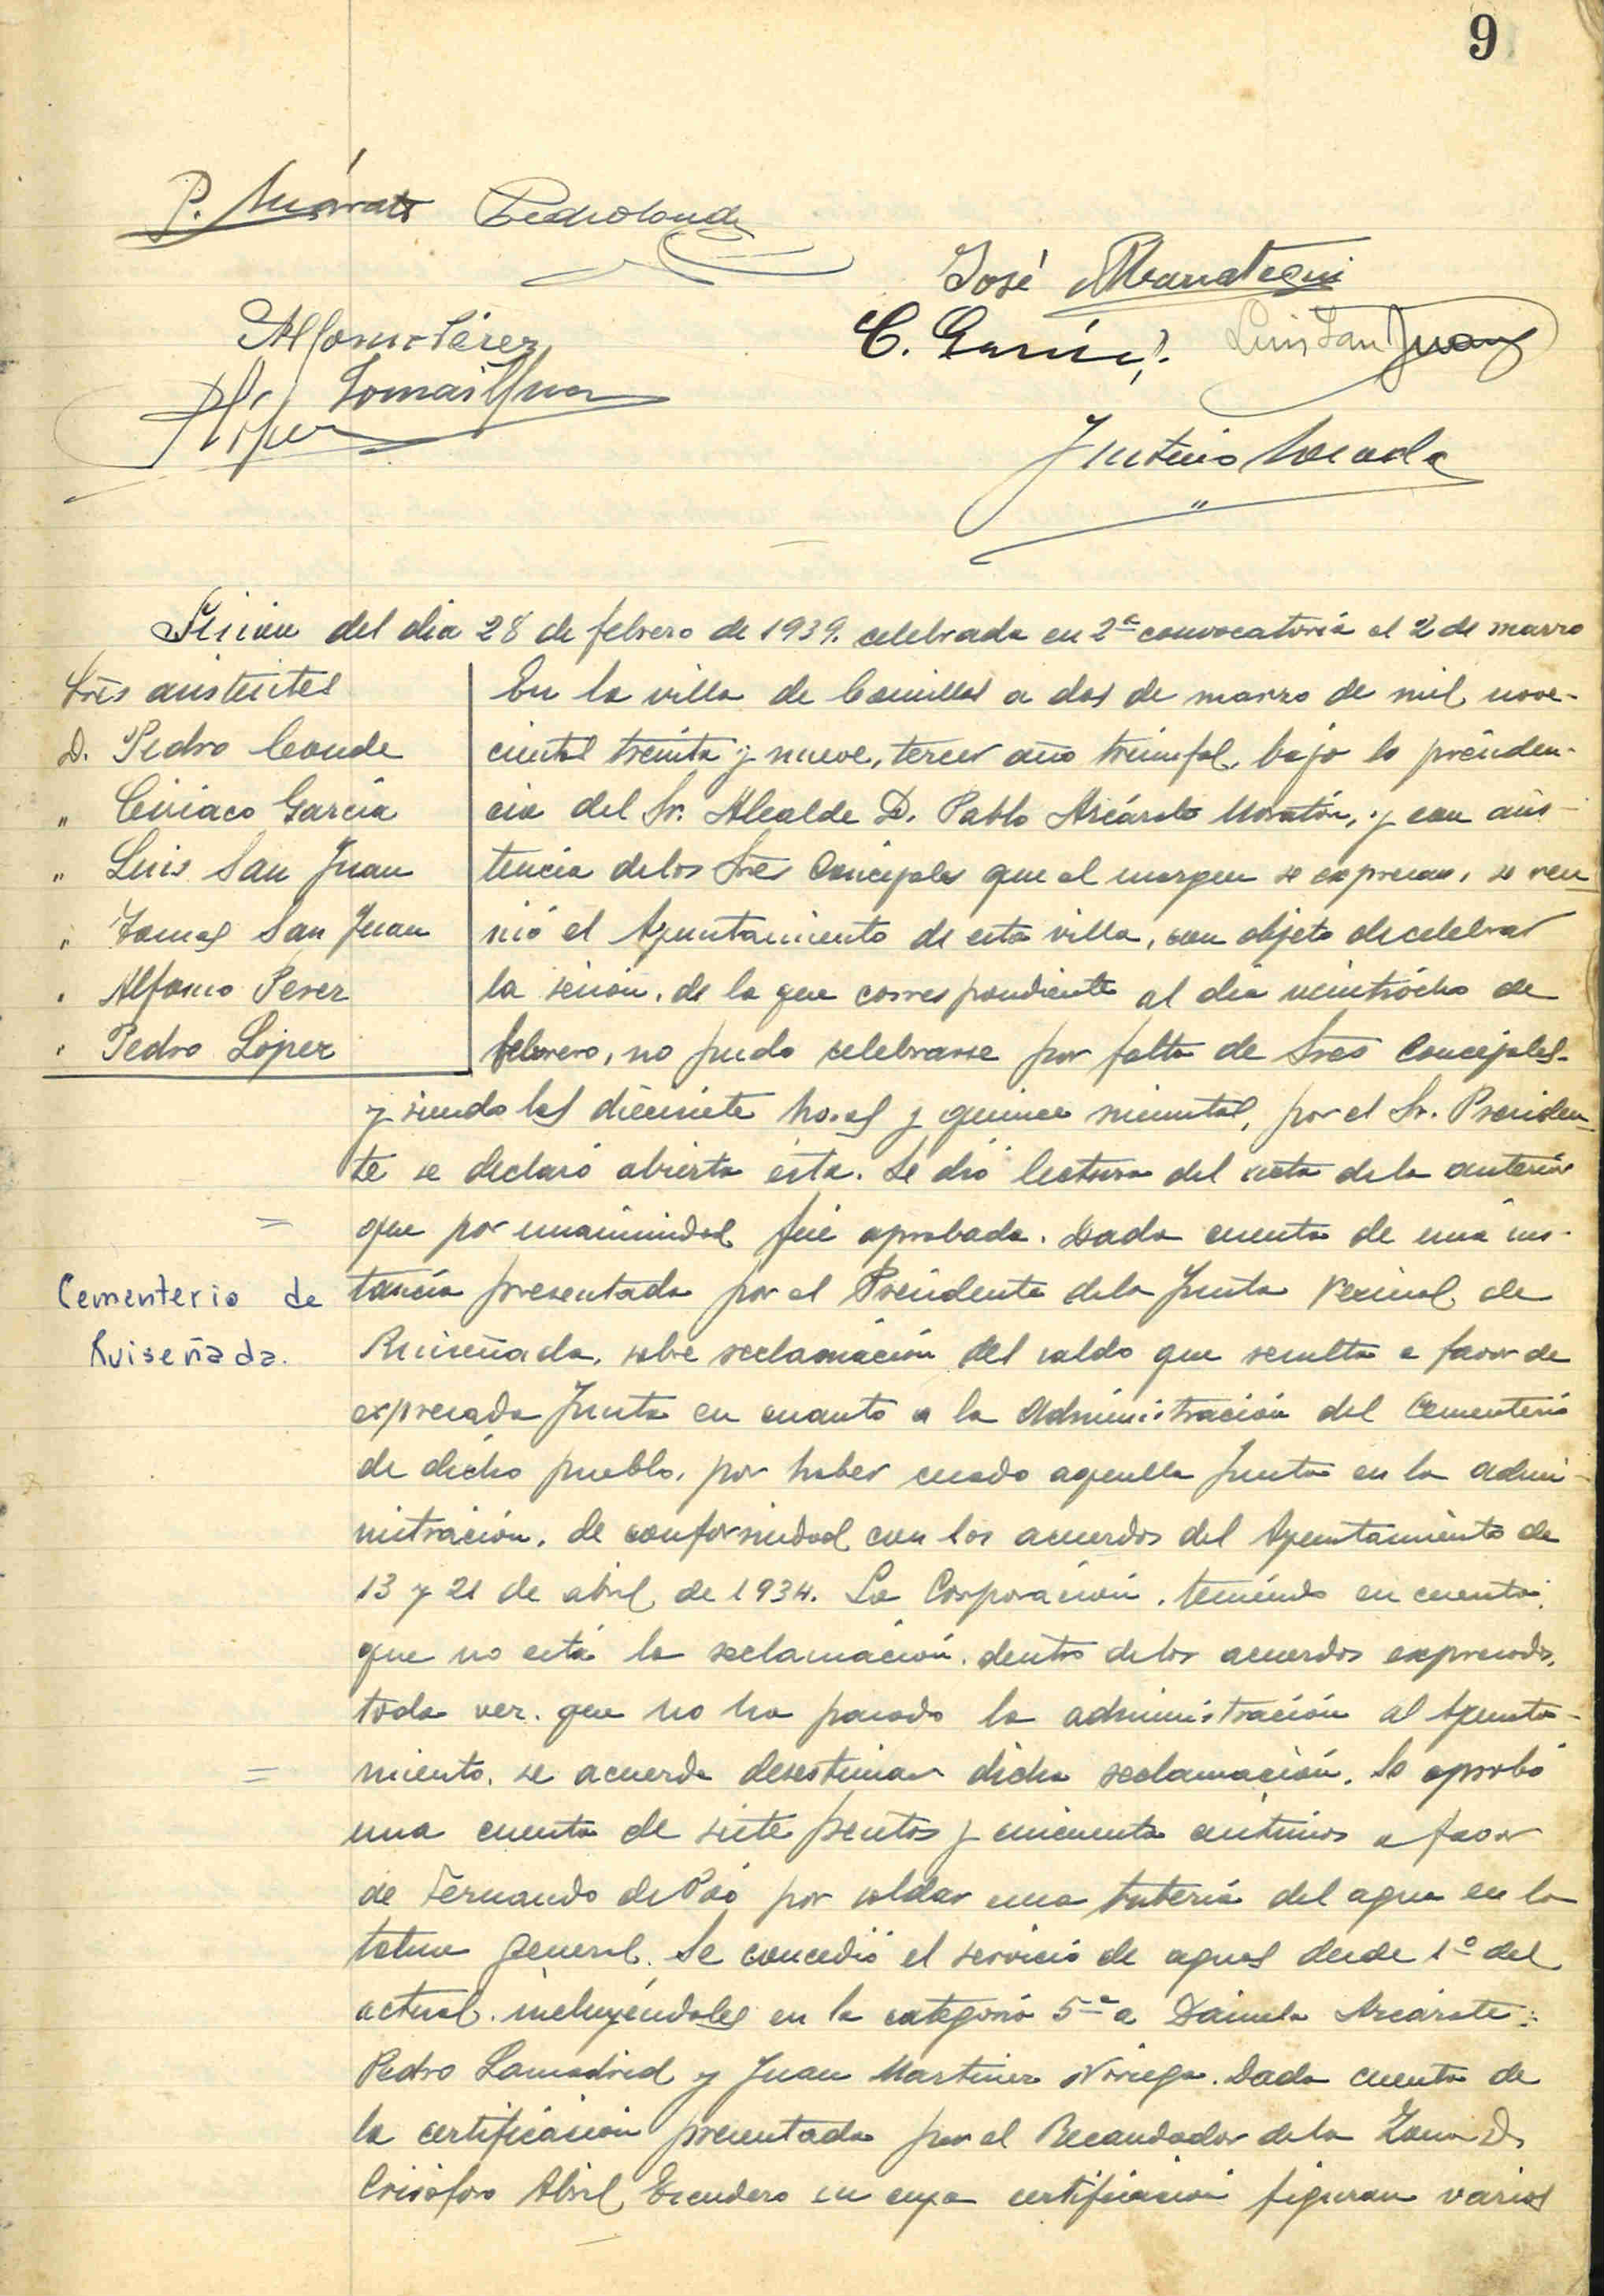 9
Pedro Conde
José
C. García
Luis San Juan
Alfonso Pérez
Tomás San Juan
López
Sesion del dia 28 de febrero de 1939. celebrada en 2ª convocatoria el 2 de marzo
Sres asistentes
D. Pedro Conde
" Ciriaco García
" Luis San Juan
" Tomas San Juan
" Alfonso Perez
" Pedro López
En la villa de Comillas a dos de marzo de mil nove-
cientos treinta y nueve, tercer año triunfal, bajo la presiden-
cia del Sr. Alcalde D. Pablo Azcárate Moratón, y con asis-
tencia de los Sres Concejales que al margen se expresan, se reu-
nió el Ayuntamiento de esta villa, con objeto de celebrar
la sesión, de la que correspondiente al dia veintiocho de
febrero, no pudo celebrarse por falta de Sres Concejales.
y siendo las diecisiete horas y quince minutos, por el Sr. Presiden-
te se declaró abierta ésta. Se dió lectura del acta de la anterior
que por unanimidad fué aprobada. Dada cuenta de una ins-
Cementerio de
Ruiseñada.
tancia presentada por el Presidente de la Junta Vecinal de
Ruiseñada, sobre reclamación del saldo que resulta a favor de
expresada Junta en cuanto a la Administración del Cementerio
de dicho pueblo, por haber cesado aquella Junta en la admi-
nistración, de conformidad con los acuerdos del Ayuntamiento de
13 y 21 de abril de 1934. La Corporación, teniendo en cuenta,
que no está la reclamación, dentro de los acuerdos expresados,
toda vez, que no ha pasado la administración al Ayunta-
miento, se acuerda desestimar dicha reclamación. Se aprobó
una cuenta de siete pesetas y cincuenta céntimos a favor
de Fernando de Poó por soldar una tubería del agua en la
general. Se concedió el servicio de aguas desde 1º del
actual, incluyéndoles en la categoria 5ª a Daniela Azcárate:
Pedro Lamadrid y Juan Martinez Noriega. Dada cuenta de
la certificación presentada por el Recaudador de la Zona D.
Crisóforo Abril Escudero en cuya certificación figuran varios